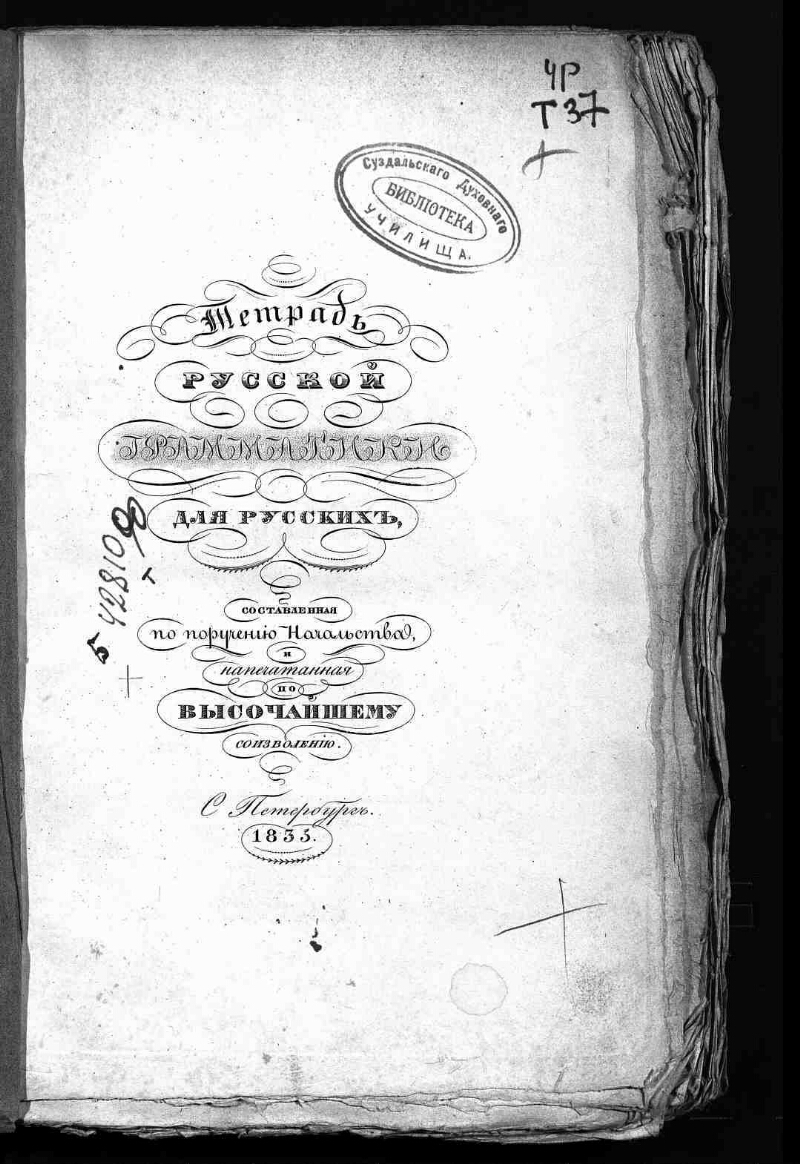 ЧР
Т 37
Суздальскаго Духовнаго
БИБЛІОТЕКА
УЧИЛИЩА.
Тетрадь
РУССКОЙ
ГРАММАТИКИ
ДЛЯ РУССКИХЪ,
СОСТАВЛЕННАЯ
по порученію Начальства,
и
напечатанная
ПО
ВЫСОЧАЙШЕМУ
СОИЗВОЛЕНІЮ.
С Петербургъ.
1835.
Б 42810
т